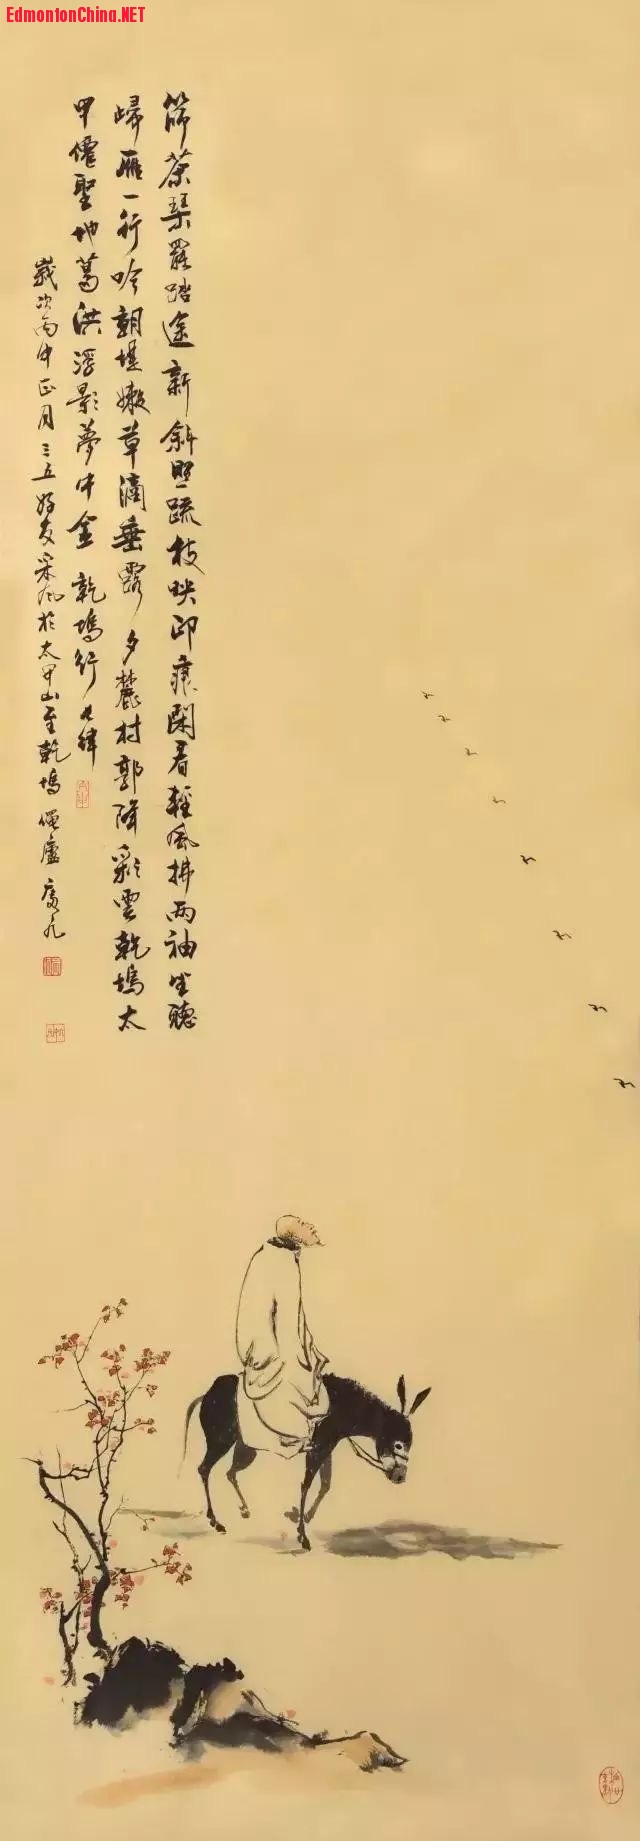 EdmontonChina.NET
茶琴罷踏途新斜照疏枝映印痕閑看輕風拂兩袖坐聽
歸雁一行吟朝堤嫩草滴垂露夕麓村郭降彩雲乾塢太
甲僊聖地葛洪浮影夢中金 乾塢行 七律
歲次丙申正月三五好友采風於太甲山至乾塢